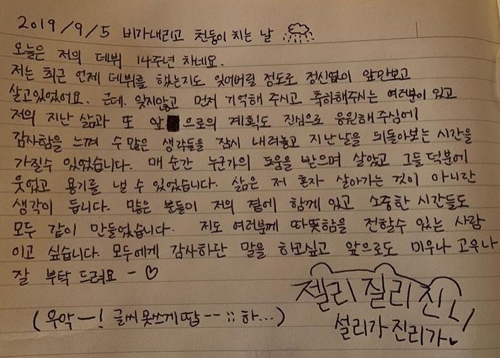 2019/9/5 비가내리고 천둥이 치는 날
오늘은 저의 데뷔 14주년 차네요.
저는 최근 언제 데뷔를 했는지도 잊어버릴 정도로 정신없이 앞만보고
살고있었어요. 근데, 잊지않고 먼저 기억해 주시고 축하해주시는 여러분이 있고
저의 지난 삶과 또 앞으로의 계획도 진심으로 응원해주심에
감사함을 느껴 수 많은 생각들을 잠시 내려놓고 지난날을 뒤돌아보는 시간을
가질수 있었습니다. 매 순간 누군가의 도움을 받으며 살았고 그들 덕분에
웃었고 용기를 낼 수 있었습니다. 삶은 저 혼자 살아가는 것이 아니란
생각이 듭니다. 많은 분들이 저의 곁에 함께 있고 소중한 시간들도
모두 같이 만들었습니다. 저도 여러분께 따뜻함을 전할수 있는 사람
이고 싶습니다. 모두에게 감사하단 말을 하고싶고 앞으로도 미우나 고우나
잘 부탁 드려요 - ♡
(우악-! 글씨 못쓰게땁--;; 하...)
젤리 질리 진니
설리가 진리가♥